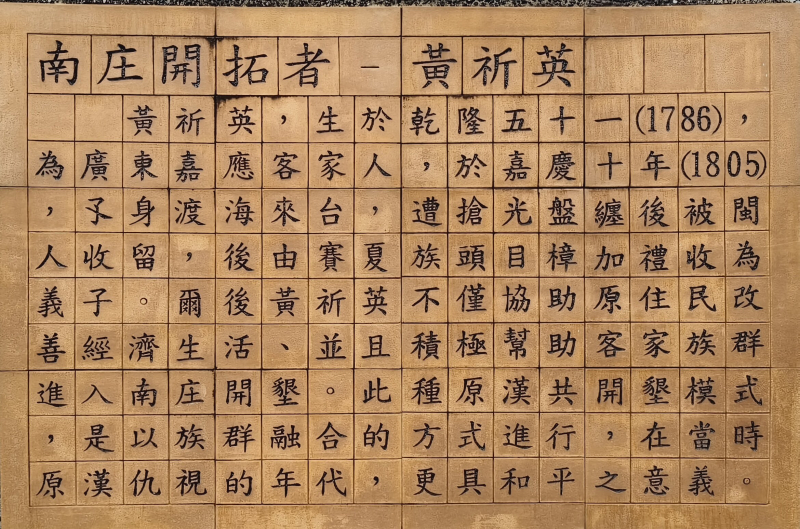 南庄開拓者－黃祈英
黃祈英，生於乾隆五十一(1786)，
為廣東嘉應客家人，於嘉慶十年(1805)
，孓身渡海來台，遭搶光盤纏後被閩
人收留，後由賽夏族頭目樟加禮收為
義子。爾後黃祈英不僅協助原住民改
善經濟生活、並且積極幫助客家族群
進入南庄開墾。此種原漢共開墾模式
，是以族群融合的方式進行，在當時
原漢仇視的年代，更具和平之意義。